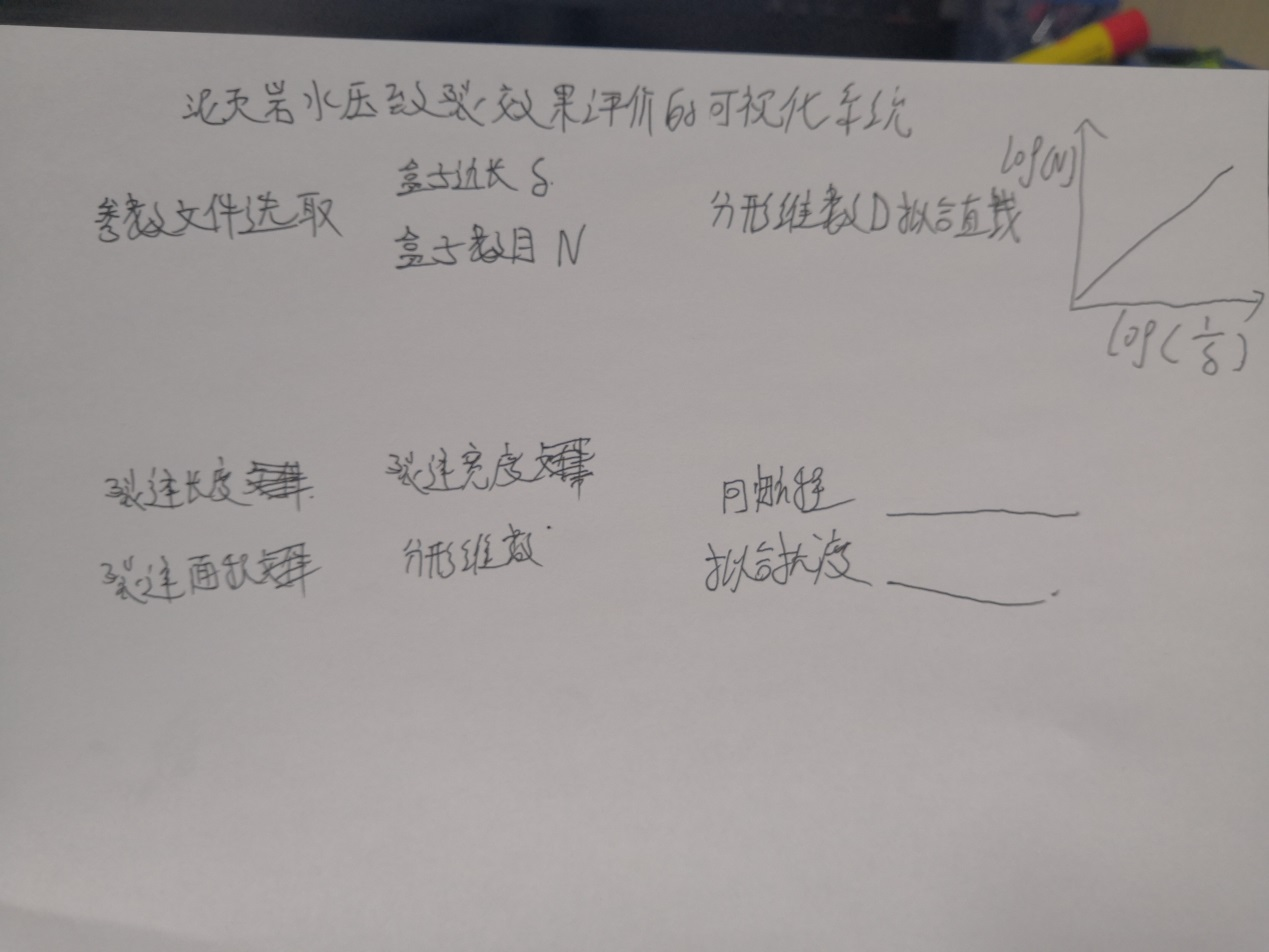 泥页岩水压致裂效果评价的可视化系统
参数文件选取
盒子边长 δ
盒子数目 N
分形维数D拟合直线
log(N)
log(1/δ)
裂缝长度
裂缝宽度
裂缝面积
分形维数
拟合